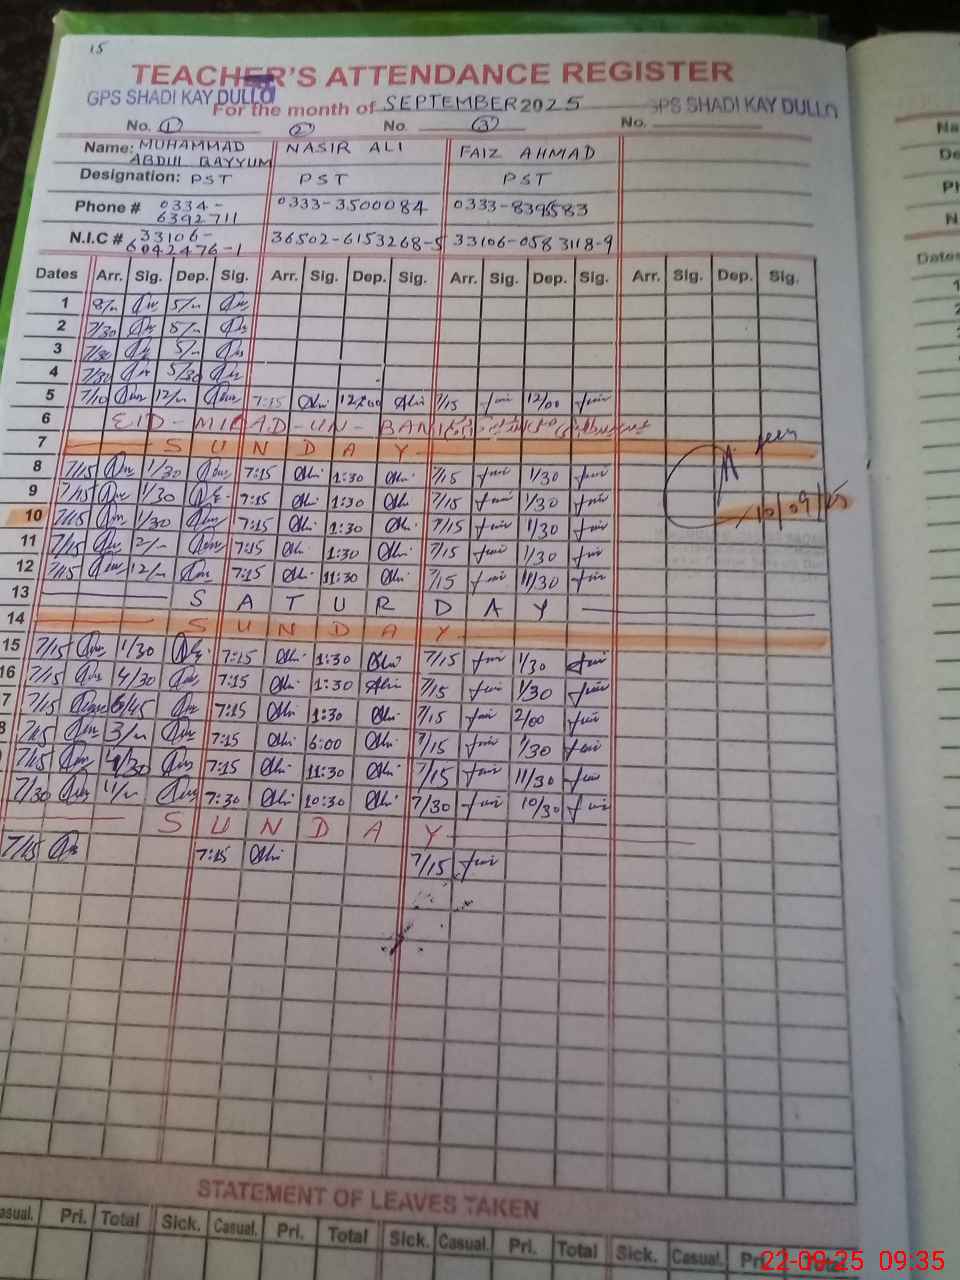 15
TEACHER'S ATTENDANCE REGISTER
GPS SHADI KAY DULLO For the month of SEPTEMBER 2025 GPS SHADI KAY DULLO
No. 1 2 No. 3 No.
Name: MUHAMMAD ABDUL QAYYUM NASIR ALI FAIZ AHMAD
Designation: PST PST PST
Phone # 0334-6392711 0333-3500084
N.I.C # 33106-6042476-1 36502-6153268-5 33106-0583118-9
Dates Arr. Sig. Dep. Sig. Arr. Sig. Dep. Sig. Arr. Sig. Dep. Sig. Arr. Sig. Dep. Sig.
1 8/- 5/-
2 7/30 5/-
3 7/30 5/-
4 7/30 5/30
5 7/10 12/- 7:15 12:00 7/15 12/00
6 EID-MILAD-UN-
7 SUNDAY
8 7/15 1/30 7:15 1:30 7/15 1/30
9 7/15 1/30 7:15 1:30 7/15 1/30
10 7/15 1/30 7:15 1:30 7/15 1/30 10/09/25
11 7/15 2/- 7:15 1:30 7/15 1/30
12 7/15 12/- 7:15 11:30 7/15 11/30
13 SATURDAY
14 SUNDAY
15 7/15 1/30 7:15 1:30 7/15 1/30
16 7/15 4/30 7:15 1:30 7/15 1/30
7 7/15 7:15 1:30 7/15 2/00
8 7/15 3/- 7:15 6:00 7/15 1/30
7/15 7:15 11:30 7/15 11/30
7/30 11/- 7:30 10:30 7/30 10/30
SUNDAY
7/15 7:15 7/15
STATEMENT OF LEAVES TAKEN
asual. Pri. Total Sick. Casual. Pri. Total Sick. Casual. Pri. Total Sick. Casual. Pri. Total
22-09-25 09:35